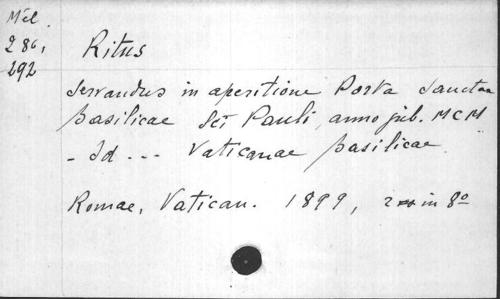 Mél.
286,
292
Ritus
servandus in aperitione Porta sanctae
basilicae Sti Pauli, anno jub. MCM
- Id --- Vaticanae basilicae
Romae, Vatican. 1899, 2 in 8º